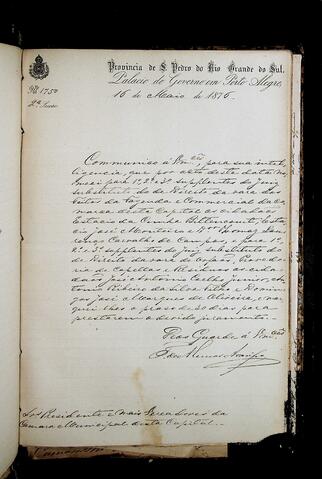 Provincia de S. Pedro do Rio Grande do Sul.
Palacio do Governo em Porto Alegre,
16 de Maio de 1876.
Nº 1750
2ª Secção
Communico á Vmces, para sua intel-
ligencia, que por acto desta data no-
meei para 1º, 2º e 3º supplentes do juiz
substituto do de Direito da vara dos
Feitos da fazenda e Commercial da co-
marca desta Capital os cidadãos
Estacio da Cunha Bittencourt,
José Monteiro e Dr. Thomaz Lou-
renço Carvalho de Campos, e para 1º
2º e 3º supplentes do juiz substituto do
de Direito da vara de Orfãos, Prove-
doria de Capellas e Residuos os cida-
dãos José Antonio Coelho Junior, An-
tonio Ribeiro da Silva e Domin-
gos José Marques de Oliveira, e mar-
quei lhes o prazo de 30 dias para
prestarem o devido juramento.
Deos Guarde á Vmces
Snrs Presidente e mais Vereadores da
Camara Municipal desta Capital.